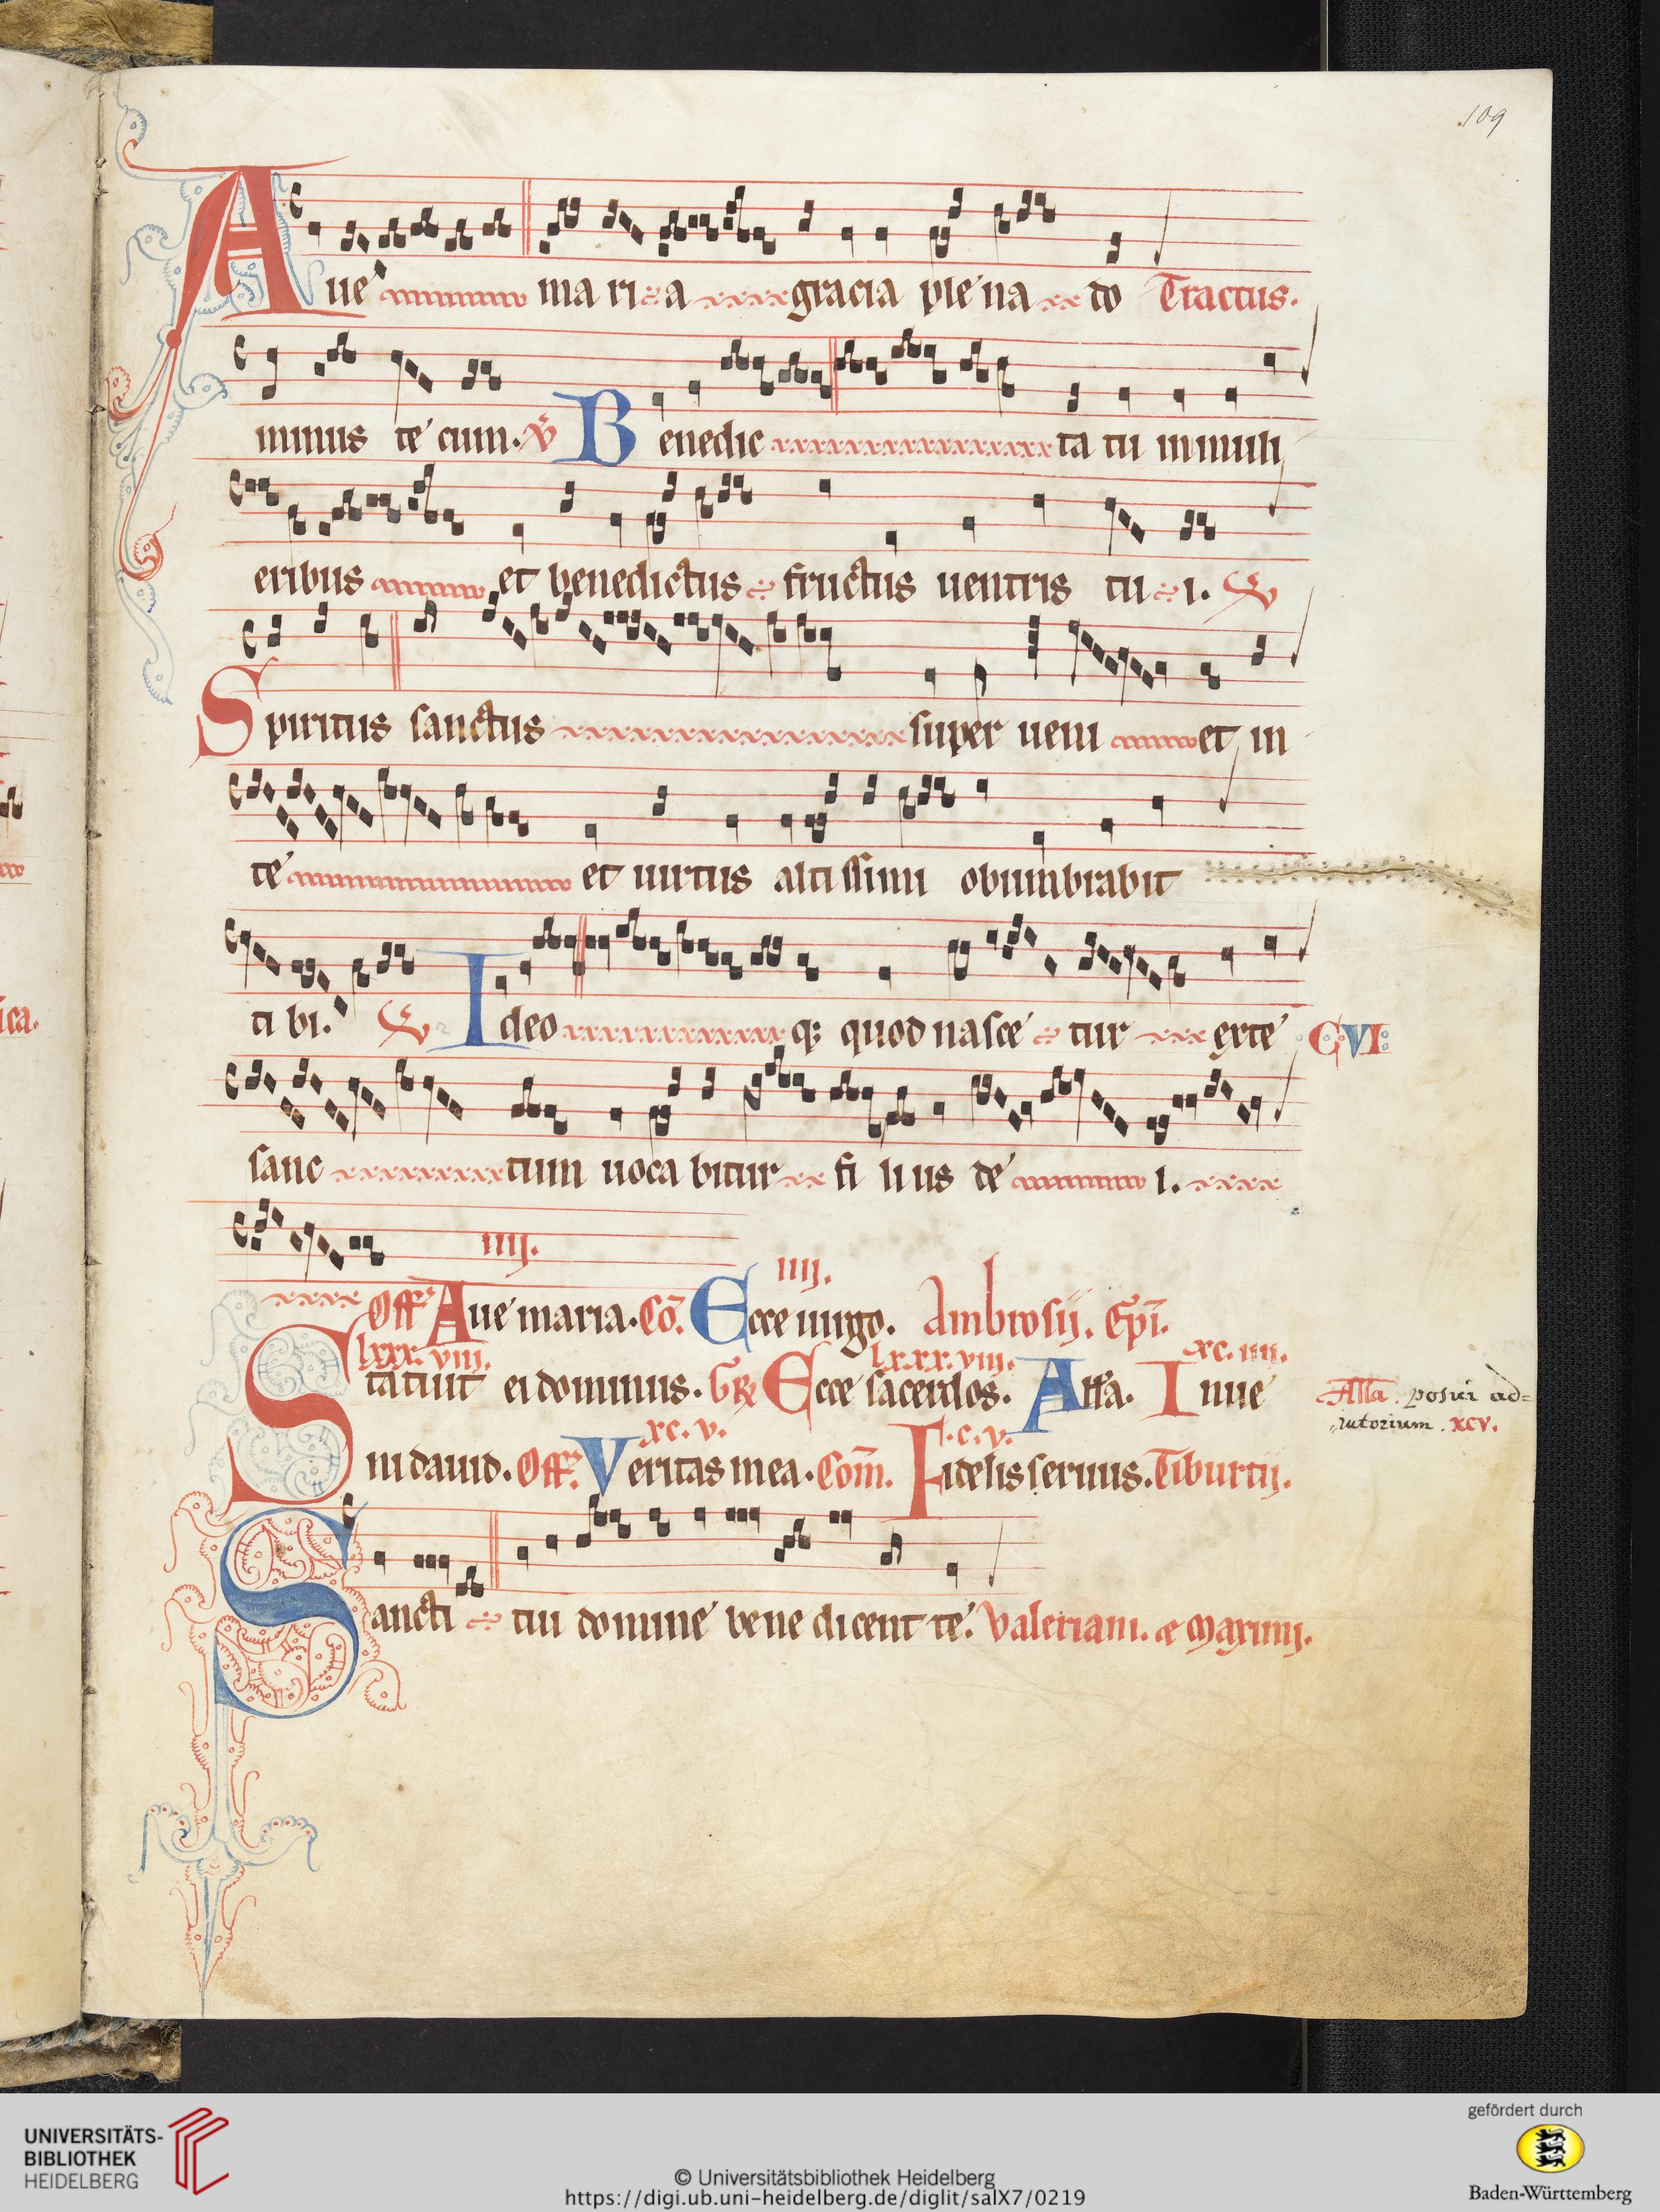 109
Aue maria gracia plena do Tractus.
minus te cum. V Benedic ta tu in muli
eribus et benedictus fructus uentris tui. V
Spiritus sanctus super ueni et in
te et uirtus altissimi obumbrabit
tibi. V Ideo q; quod nasce tur ex te CVI
sanc tum uoca bitur fi lius de i.
IIII. IIII.
Off Aue maria. Co. Ecce uirgo. Ambrosii. Epi.
lxxx.viii. lxxx.viii. xc.iiii.
Statuit ei dominus. GR Ecce sacerdos. Alla. Inue
Alla. posui ad=
iutorium. xcv.
xc.v. c.v.
ni dauid. Off. Veritas mea. Com. Fidelis seruus. Tiburtii.
Sancti tui domine bene dicent te. Valeriani. et Maximi.
ica.
UNIVERSITÄTS-
BIBLIOTHEK
HEIDELBERG
© Universitätsbibliothek Heidelberg
https://digi.ub.uni-heidelberg.de/diglit/salX7/0219
gefördert durch
Baden-Württemberg